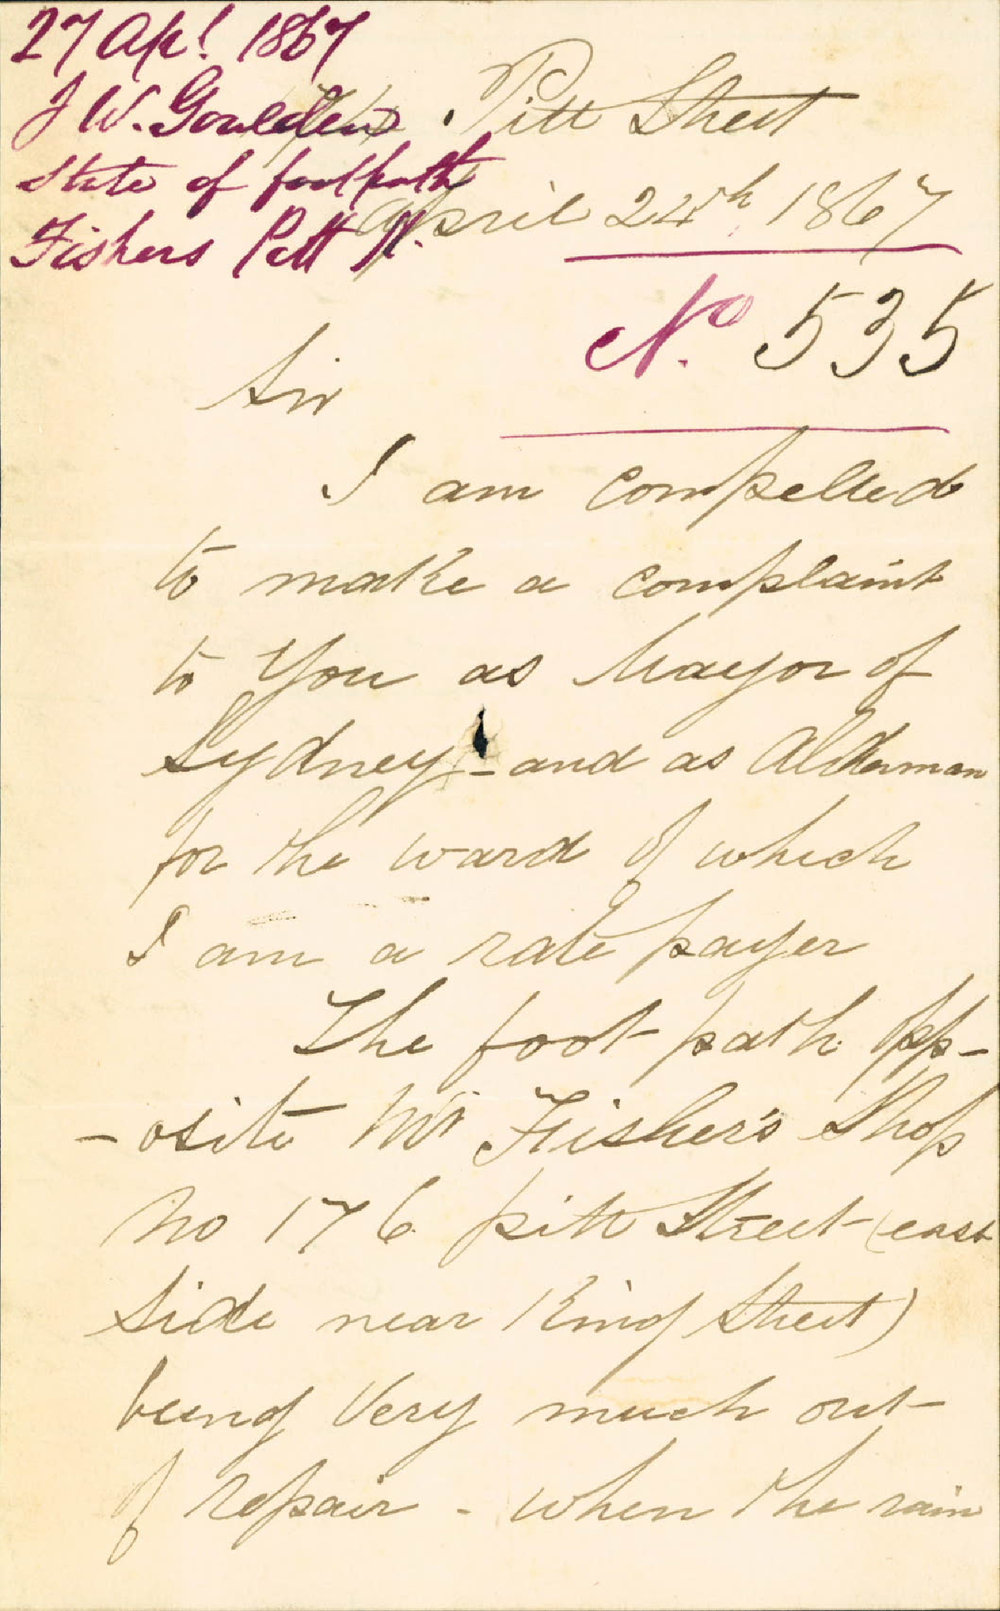 27 Apl. 1867
J W. Goulden
State of footpath
Fishers Pitt St.
Pitt Street
April 24th 1867
No. 535
Sir
I am compelled
to make a complaint
to You as Mayor of
Sydney - and as Alderman
for the ward of which
I am a rate payer
The foot path Opp-
- osite Mr Fisher's Shop
No 176 pitt Street (east
Side near King Street)
being Very much out
of repair - when the rain